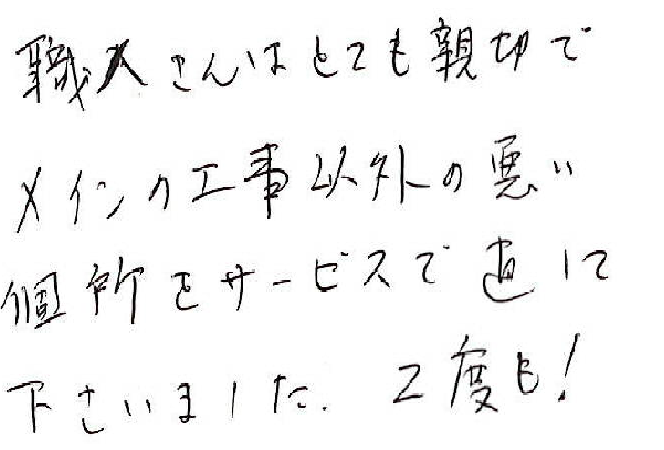 職人さんはとても親切で
メインの工事以外の悪い
個所をサービスで直して
下さいました. 2度も!